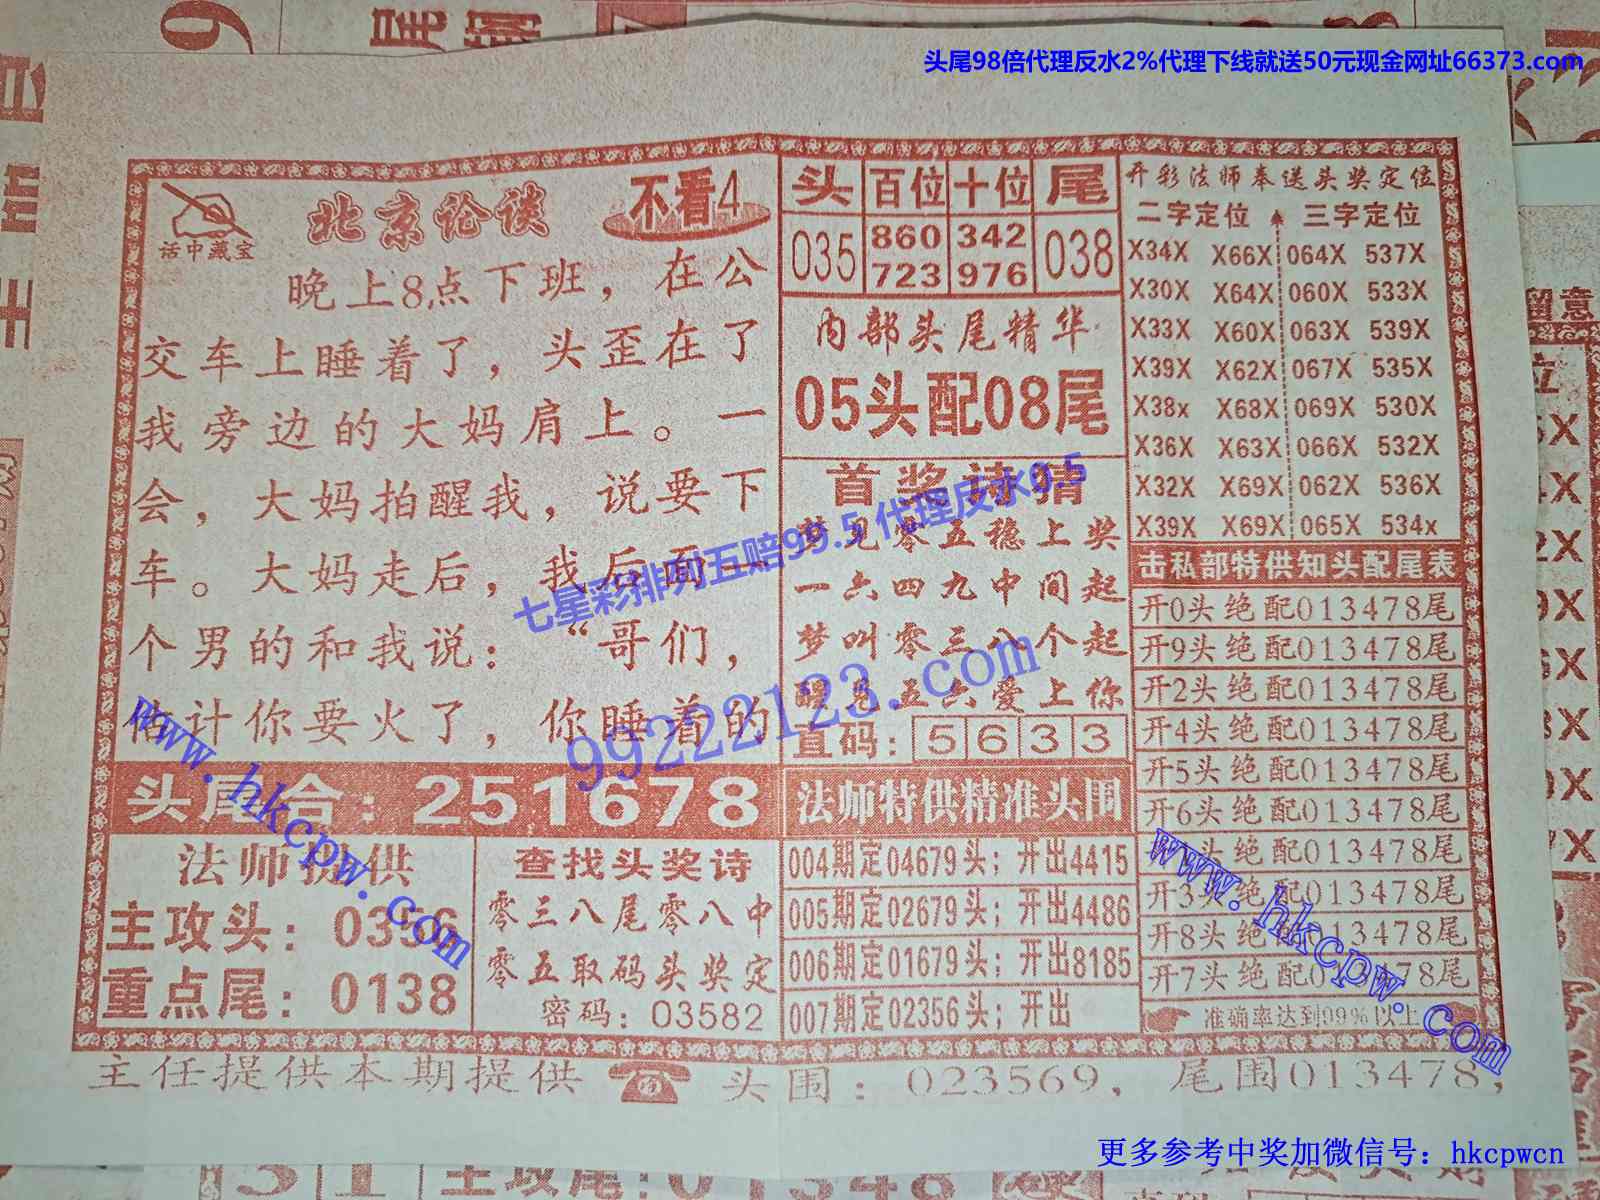 头尾98倍代理反水2%代理下线就送50元现金网址66373.com
话中藏宝
北京论谈
不看4
晚上8点下班，在公
交车上睡着了，头歪在了
我旁边的大妈肩上。一
会，大妈拍醒我，说要下
车。大妈走后，我后面一
个男的和我说：“哥们，
估计你要火了，你睡着的
头尾合：251678
法师提供
主攻头：0356
重点尾：0138
查找头奖诗
零三八尾零八中
零五取码头奖定
密码：03582
头 百位 十位 尾
035 860 342 038
723 976
内部头尾精华
05头配08尾
首奖诗猜
梦见零五稳上奖
一六四九中间起
梦叫零三八个起
醒见五六爱上你
直码：5633
法师特供精准头围
004期定04679头；开出4415
005期定02679头；开出4486
006期定01679头；开出8185
007期定02356头；开出
开彩法师奉送头奖定位
二字定位 三字定位
X34X X66X 064X 537X
X30X X64X 060X 533X
X33X X60X 063X 539X
X39X X62X 067X 535X
X38x X68X 069X 530X
X36X X63X 066X 532X
X32X X69X 062X 536X
X39X X69X 065X 534x
击私部特供知头配尾表
开0头绝配013478尾
开9头绝配013478尾
开2头绝配013478尾
开4头绝配013478尾
开5头绝配013478尾
开6头绝配013478尾
头绝配013478尾
开3头绝配013478尾
开8头绝配013478尾
开7头绝配013478尾
准确率达到99%以上
主任提供本期提供 头围：023569，尾围013478，
七星彩排列五赔99.5代理反水0.5
99222123.com
www.hkcpw.com
www.hkcpw.com
更多参考中奖加微信号：hkcpwcn
留意